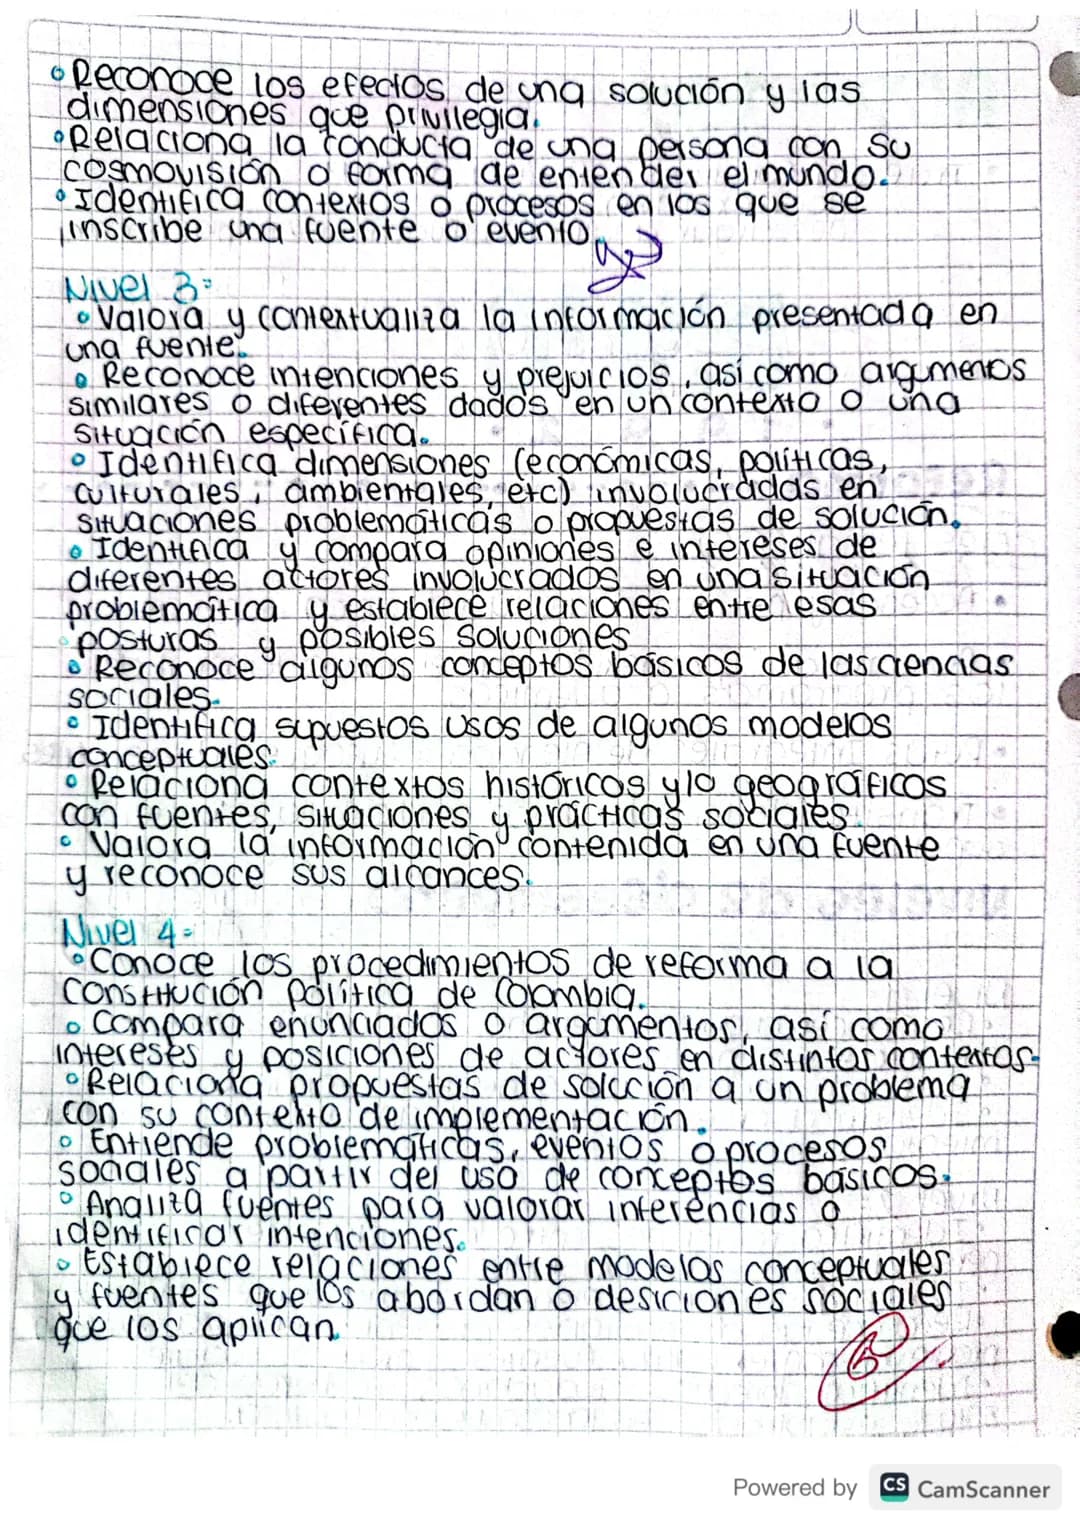 Reconoce los efectos de una solución y las
dimensiones que privilegia.
Relaciona la conducta de una persona con su
cosmovisión o forma de entender el mundo.
Identifica contextos o procesos en los que se
inscribe una fuente o evento.
Nivel 3:
Valora y contextualiza la información presentada en
una fuente.
Reconoce intenciones y prejuicios, así como argumenos
similares o diferentes dados en un contexto o una
situación específica.
Identifica dimensiones (económicas, políticas,
culturales, ambientales, etc) involucradas en
situaciones problemáticas o propuestas de solución.
Identifica y compara opiniones e intereses de
diferentes actores involucrados en una situación
problemática y establece relaciones entre esas
posturas y posibles soluciones
Reconoce algunos conceptos básicos de las ciencias
sociales.
Identifica supuestos usos de algunos modelos
conceptuales.
Relaciona contextos históricos y/o geográficos
con fuentes, situaciones y prácticas sociales.
Valora la información contenida en una fuente
y reconoce sus alcances.
Nivel 4=
Conoce los procedimientos de reforma a la
Constitución política de Colombia.
Compara enunciados o argumentos, así como
intereses y posiciones de actores en distintos contextos.
Relaciona propuestas de solución a un problema
con su contexto de implementación.
Entiende problemáticas, eventos o procesos
sociales a partir del uso de conceptos básicos.
Analiza fuentes para valorar inferencias o
identificar intenciones.
Establece relaciones entre modelos conceptuales
y fuentes que los abordan o desiciones sociales
que los aplican.
5
Powered by CS CamScanner